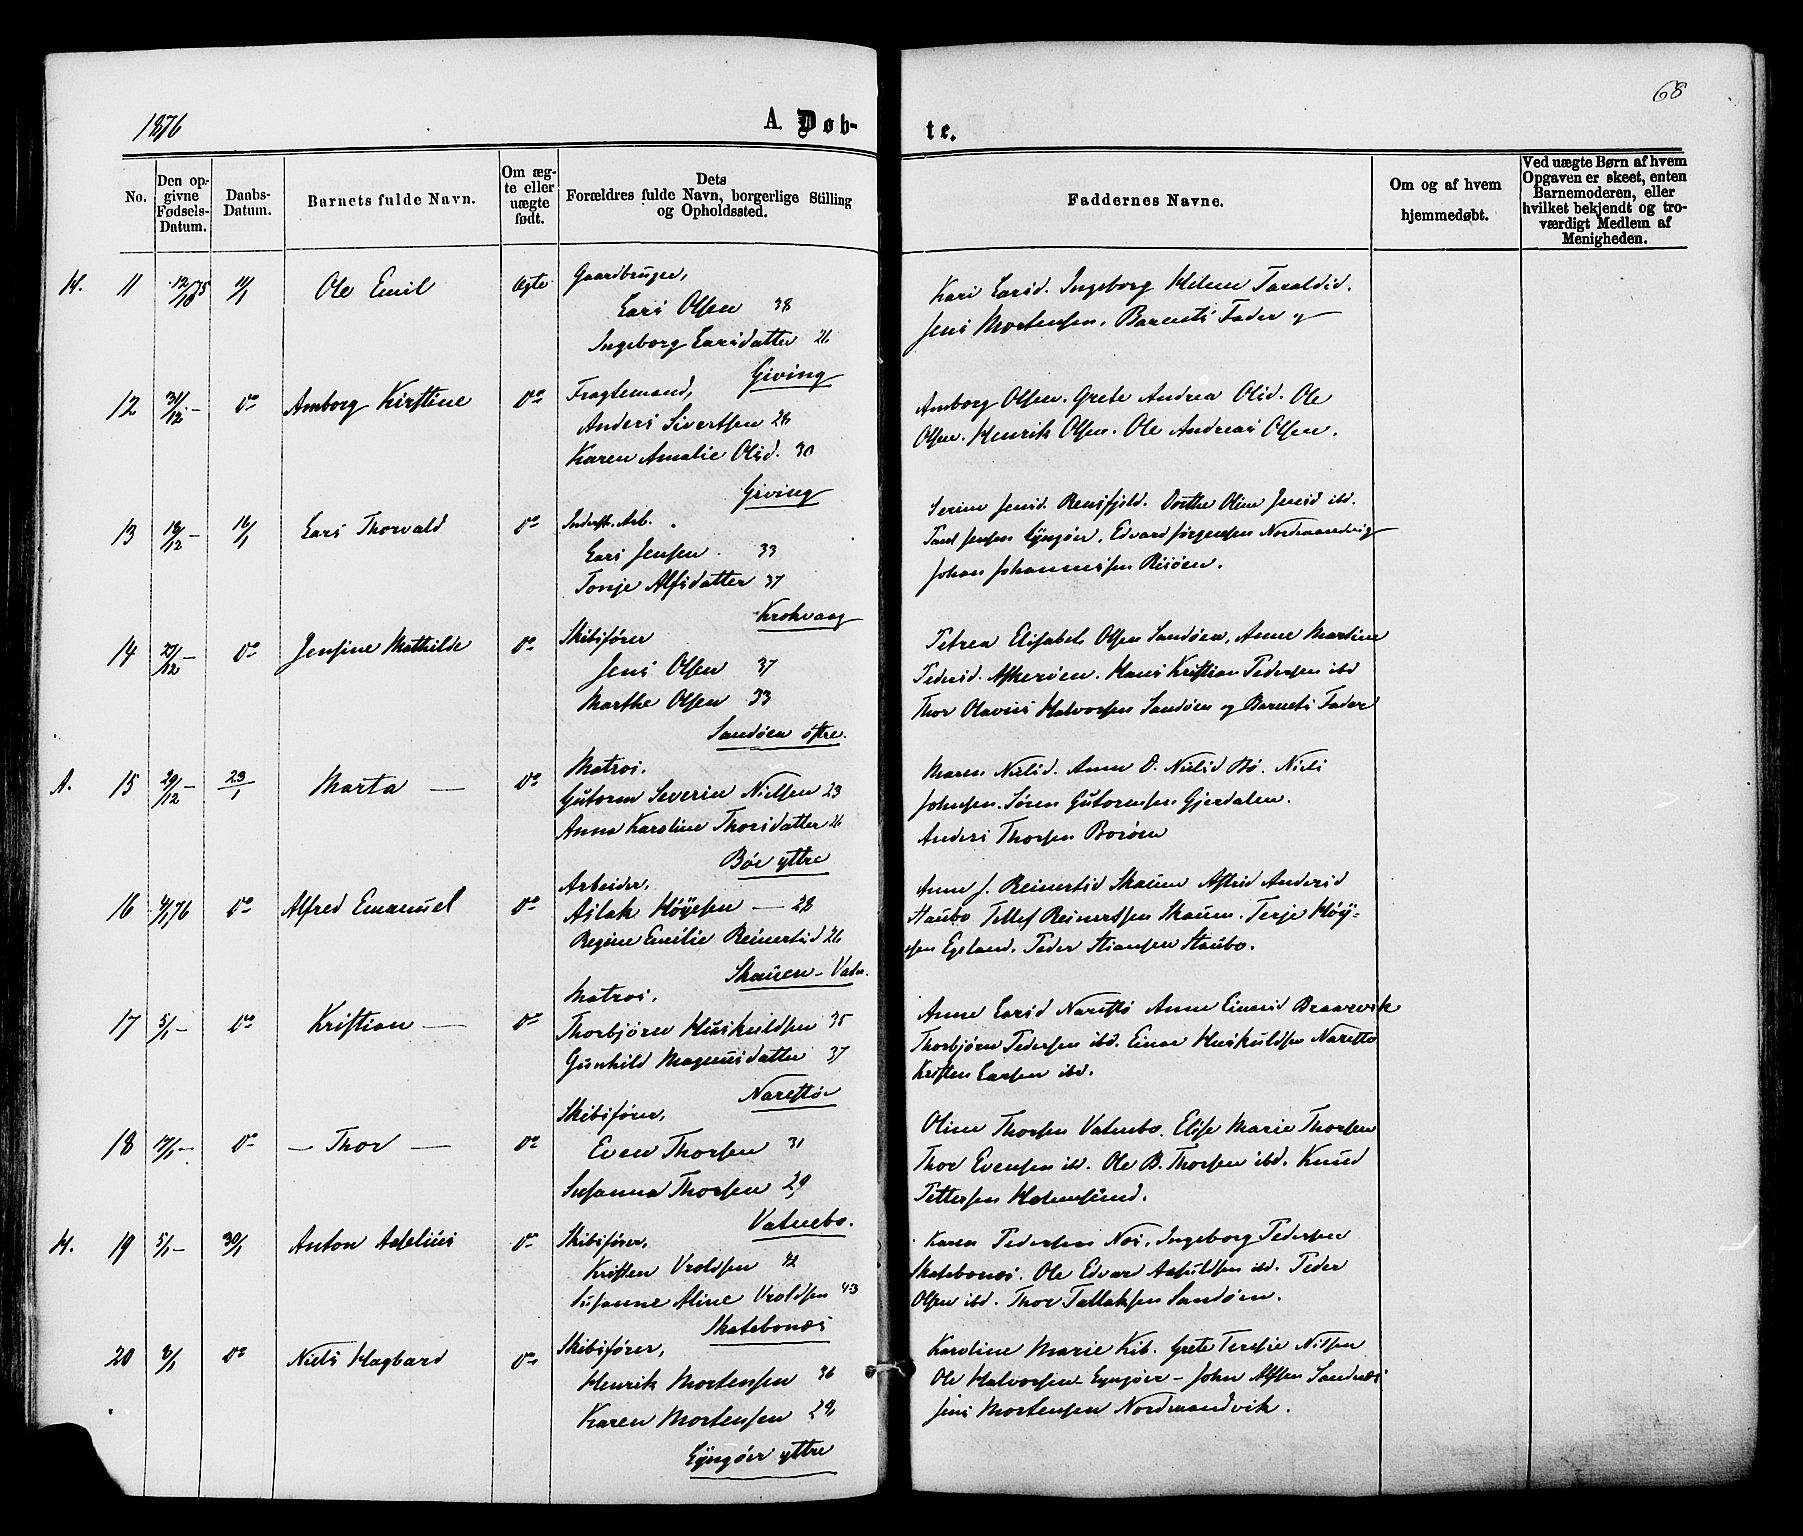 68
1876
A. Døb-
te.
No.
Den op-
givne
Fødsels-
Datum.
Daabs-
Datum.
Barnets fulde Navn.
Om æg-
te eller
uægte
født.
Dets
Forældres fulde Navn, borgerlige Stilling
og Opholdssted.
Faddernes Navne.
Om og af hvem
hjemmedøbt.
Ved uægte Børn af hvem
Opgaven er skeet, enten
Barnemoderen, eller
hvilket bekjendt og tro-
værdigt Medlem af
Menigheden.
H. 11 Ole Emil Ægte Gaardbruger,
Lars Olsen 38
Ingeborg Larsdatter 26
Giving
Kari Larsd. Ingeborg Helene Taraldsd.
Jens Mortensen. Barnets Fader
12 31/12 - Do Amborg Kirstine Do Fragtemand,
Anders Sivertsen 26
Karen Amalie Olsd. 30
Giving
Amborg Olsen. Grete Andrea Olsd. Ole
Olsen. Henrik Olsen. Ole Andreas Olsen.
13 18/12 - 16/1 Lars Thorvald Do Inderst. Arb.
Lars Jensen 33
Tonje Alfsdatter 37
Krokvaag
Serine Jensd. Rensfjeld. Dorthe Oline Jensd ibd.
Jensen Lyngøer. Edvard Jørgensen Nordmandvig
Johan Johannissen Risøen.
14 27/12 - Do Jensine Mathilde Do Skibsfører
Jens Olsen 37
Marthe Olsen 33
Sandøen østre.
Petrea Elisabet Olsen Sandøen, Anne Martine
Pedersd. Askerøen. Hans Kristian Pedersen ibd
Thor Olavus Halvorsen Sandøen og Barnets Fader
A. 15 29/12 - 23/1 Marta — Do Matros.
Gutorm Severin Nielsen 23
Anna Karoline Thorsdatter 26
Bøe yttre
Maren Nielsd. Anne O. Nielsd Bø. Niels
Johnsen. Søren Gutormsen Gjerdalen.
Anders Thorsen Borøen
16 4/1 76 Do Alfred Emanuel Do Arbeider,
Aslak Høyesen — 28
Regine Emilie Reinertsd 26
Skauen - Vatn.
Anne J. Reinertsd Skauen Astrid Andersd
Staubo Tellef Reinertsen Skauen. Terje Høy-
sen Egeland. Peder Stiansen Staubo.
17 5/1 - Do Kristian — Do Matros.
Thorbjørn Huskuldsen 35
Gunhild Magnusdatter 37
Narestø
Anne Larsd Narestø Anne Einarsd Braarvik
Thorbjørn Pedersen ibd. Einar Huskuldsen Narestø
Kristen Larsen ibd.
18 Do — Thor — Do Skibsfører,
Even Thorsen 31
Susanna Thorsen 29
Vatnebo.
Oline Thorsen Vatnebo. Elise Marie Thorsen
Thor Evensen ib. Ole B. Thorsen ibd. Knud
Pettersen Holmesund.
H. 19 5/1 - 30/1 Anton Adelius Do Skibsfører,
Kristen Vroldsen 42
Susanne Aline Vroldsen 43
Skatebonæs
Karen Pedersen Næs, Ingeborg Pedersen
Skatebonæs. Ole Edvard Aasuldsen ibd. Peder
Olsen ibd. Thor Tallaksen Sandøen.
20 8/1 Do Niels Hagbard Do Skibsfører,
Henrik Mortensen 36
Karen Mortensen 29
Lyngøer yttre
Karoline Marie Kib. Grete Teresie Nilsen
Ole Halvorsen Lyngøer - John Alfsen Sandnæs
Jens Mortensen Nordmandvik.